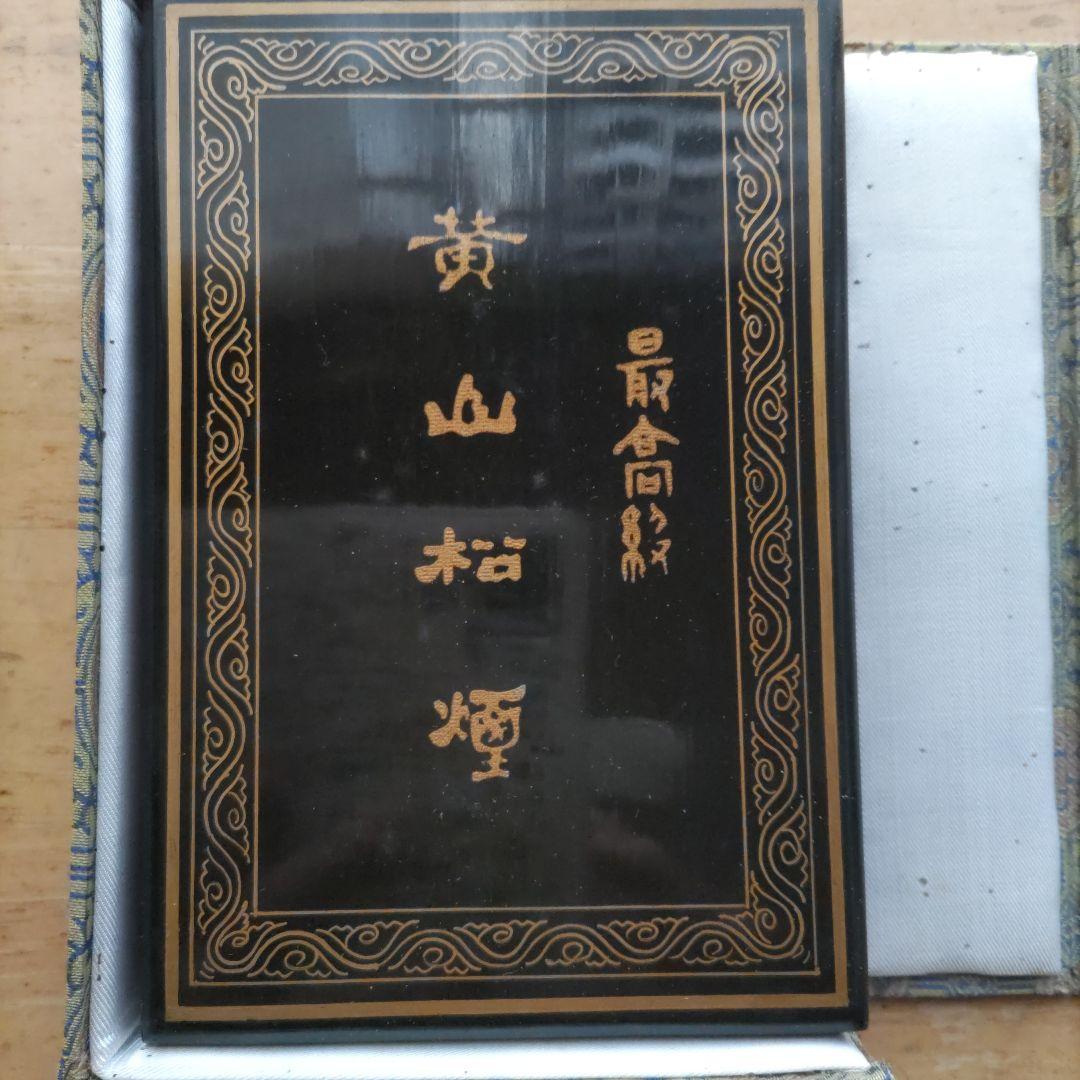 最高級
黄山松煙